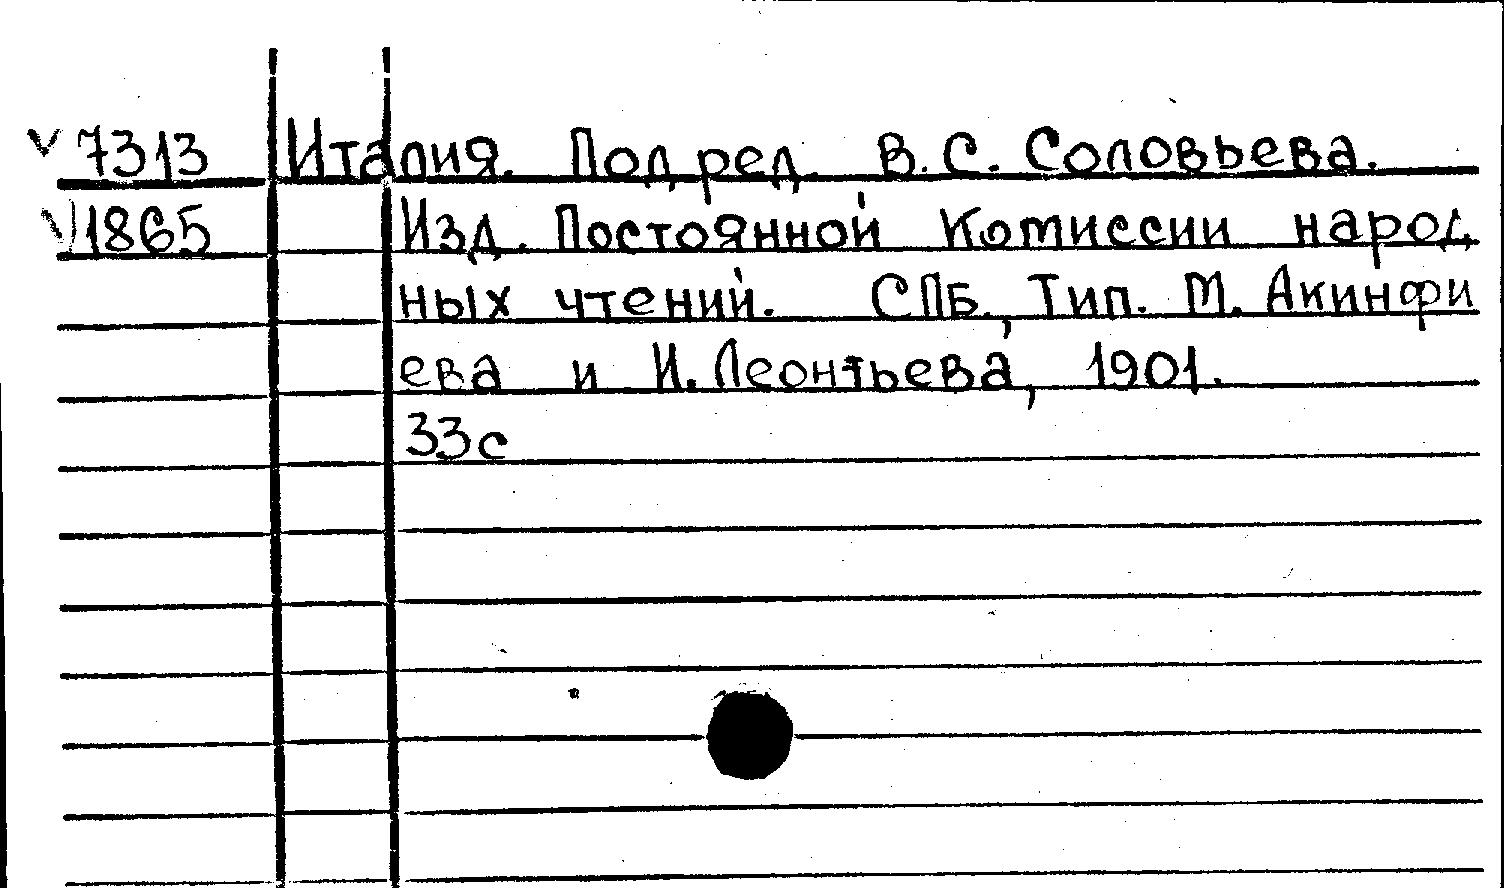 V 7313 Италия. Под ред. В.С. Соловьева.
V 1865 Изд. Постоянной Комиссии народ
ных чтений. СПБ., Тип. М. Акинфи
ева и И. Леонтьева, 1901.
33с